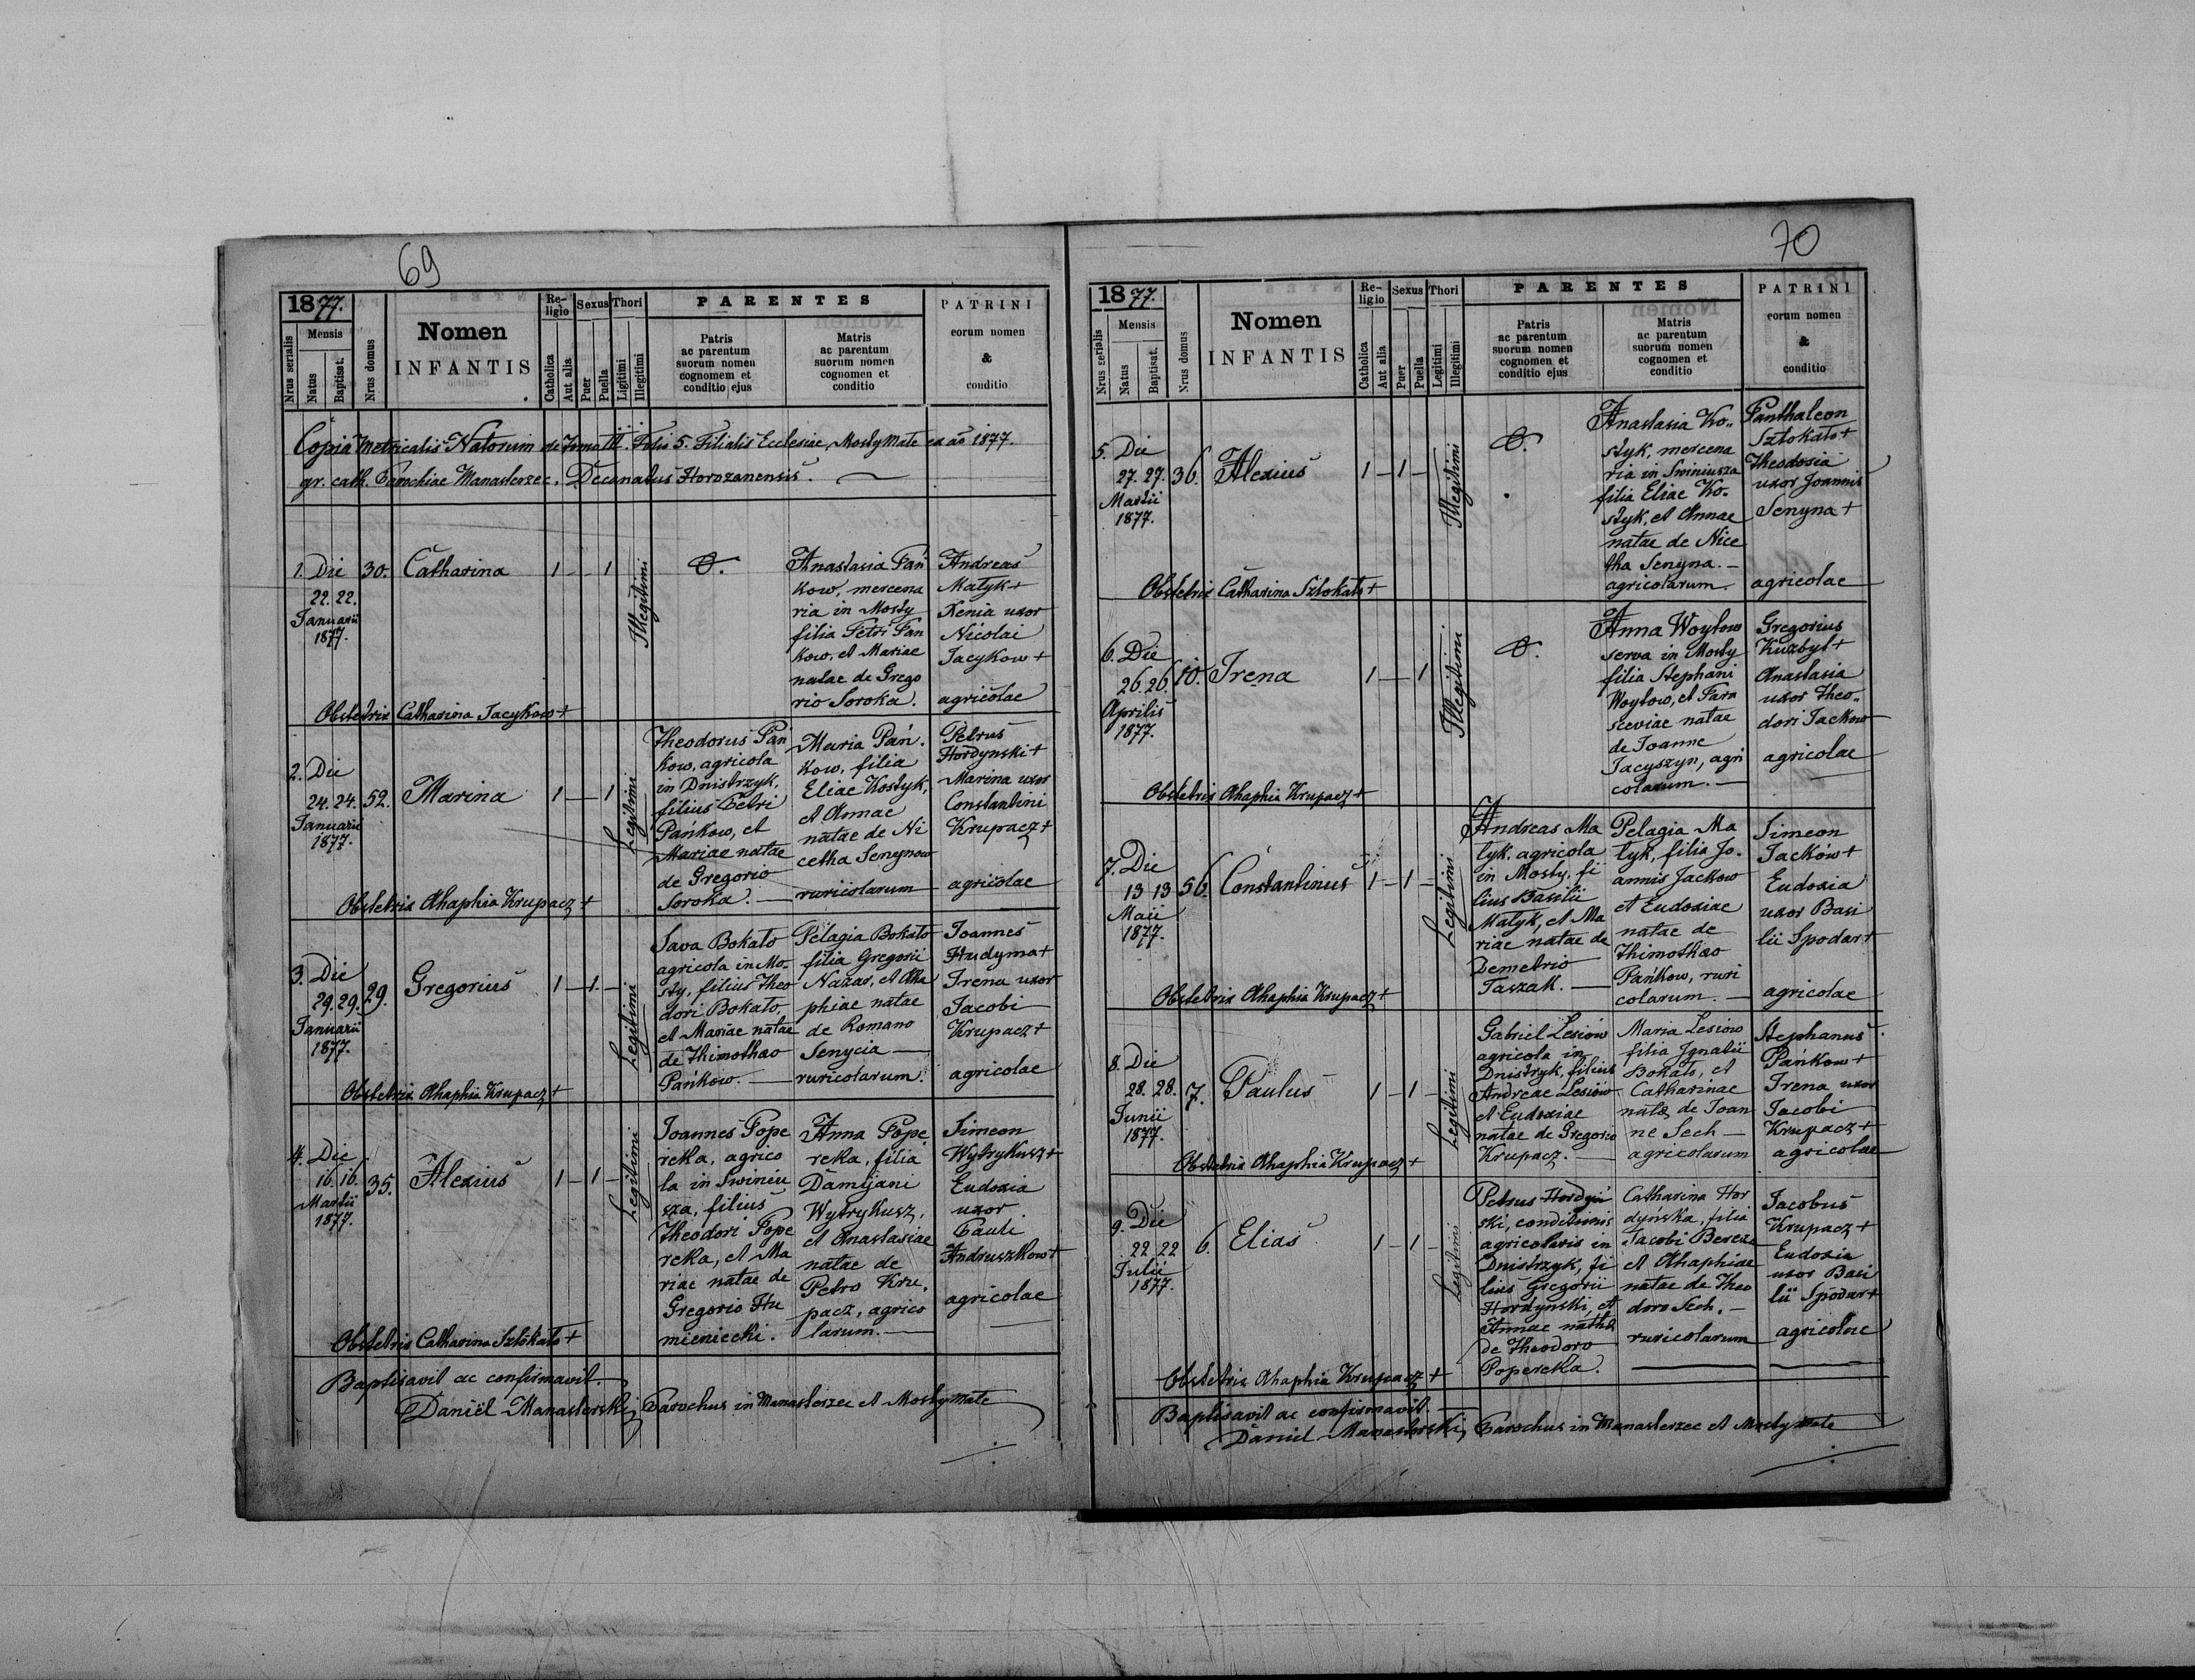 69
1877.
Nrus serialis
Mensis
Natus
Baptisat.
Nrus domus
Nomen
INFANTIS
Re-
ligio
Catholica
Aut alia
Sexus
Puer
Puella
Thori
Ligitimi
Illegitimi
PARENTES
Patris
ac parentum
suorum nomen
cognomem et
conditio ejus
Matris
ac parentum
suorum nomen
cognomen et
conditio
PATRINI
eorum nomen
&
conditio
Copia Metricalis Natorum de Tomo III. Folio 5. Filialis Ecclesiae Mosty Małe ex ao 1877.
gr. cath. Parochiae Manasterzec, Decanatus Horozanensis.
1. Die
22. 22.
Januarii
1877.
30.
Catharina
1 - - 1
Illegitimi
Anastasia Pań
kow, mercena
ria in Mosty
filia Petri Pan
kow, et Mariae
natae de Grego
rio Soroka.
Andreas
Matyk +
Xenia uxor
Nicolai
Jacykow +
agricolae
Obstetrix Catharina Jacykow +
2. Die
24. 24.
Januarii
1877.
52.
Marina
1 - 1
Legitimi
Theodorus Pan
kow, agricola
in Dnistrzyk,
filius Petri
Pańkow, et
Mariae natae
de Gregorio
Soroka.
Maria Pań.
kow, filia
Eliae Kostyk,
et Annae
natae de Ni
cetha Senynow
ruricolarum
Petrus
Hordynski +
Marina uxor
Constantini
Krupacz +
agricolae
Obstetrix Ahaphia Krupacz +
3. Die
29. 29.
Januarii
1877.
29.
Gregorius
1 - 1 -
Legitimi
Sava Bokało
agricola in Mo-
sty, filius Theo
dori Bokało,
et Mariae natae
de Thimothao
Pańkow.
Pelagia Bokało
filia Gregorii
Nazar, et Aha
phiae natae
de Romano
Senycia
ruricolarum.
Joannes
Hudyma +
Irena uxor
Jacobi
Krupacz +
agricolae
Obstetrix Ahaphia Krupacz +
4. Die
16. 16.
Martii
1877.
35.
Alexius
1 - 1 -
Legitimi
Joannes Pope
reka, agrico
la in Swiniu
sza, filius
Theodori Pope
reka, et Ma
riae natae de
Gregorio Hu
mieniecki.
Anna Pope
reka, filia
Damijani
Wytrykusz,
et Anastasiae
natae de
Petro Kru,
pacz, agrico
larum.
Simeon
Wytrykusz +
Eudoxia
uxor
Pauli
Andruszkow +
agricolae
Obstetrix Catharina Sztokało +
Baptisavit ac confirmavit.
Daniël Manasterski, Parochus in Manasterzec et Mosty małe
70
1877.
Nrus serialis
Mensis
Natus
Baptisat.
Nrus domus
Nomen
INFANTIS
Re-
ligio
Catholica
Aut alia
Sexus
Puer
Puella
Thori
Legitimi
Illegitimi
PARENTES
Patris
ac parentum
suorum nomen
cognomen et
conditio ejus
Matris
ac parentum
suorum nomen
cognomen et
conditio
PATRINI
eorum nomen
&
conditio
5. Die
27. 27.
Martii
1877.
36.
Alexius
1 - 1 -
Illegitimi
Anastasia Ko-
styk, mercena
ria in Swiniusza
filia Eliae Ko-
styk, et Annae
natae de Nice
tha Senyna.
agricolarum.
Panthaleon
Sztokało +
Theodosia
uxor Joannis
Senyna +
agricolae
Obstetrix Catharina Sztokało +
6. Die
26. 26.
Aprilis
1877.
10.
Irena
1 - 1
Illegitimi
Anna Woytow
serva in Mosty
filia Stephani
Woytow, et Para
sceviae natae
de Joanne
Jacyszyn, agri
colarum.
Gregorius
Kuzbyt +
Anastasia
uxor Theo-
dori Jackow
agricolae
Obstetrix Ahaphia Krupacz +
7. Die
13 13
Maii
1877.
56.
Constantinus
1 - 1 -
Legitimi
Andreas Ma
tyk, agricola
in Mosty, fi
lius Basilii
Matyk, et Ma
riae natae de
Demetrio
Taszak.
Pelagia Ma
tyk, filia Jo.
annis Jackow
et Eudoxiae
natae de
Thimothao
Pańkow, ruri
colarum.
Simeon
Jacków +
Eudoxia
uxor Basi
lii Spodar +
agricolae
Obstetrix Ahaphia Krupacz +
8. Die
28. 28.
Junii
1877.
7.
Paulus
1 - 1 -
Legitimi
Gabriel Lesiów
agricola in
Dnistryk, filius
Andreae Lesiów
et Eudoxiae
natae de Gregorio
Krupacz.
Maria Lesiow
filia Jgnatii
Bokało, et
Catharinae
natae de Joan
ne Sech
agricolarum
Stephanus
Pańkow +
Irena uxor
Jacobi
Krupacz +
agricolae
Obstetrix Ahaphia Krupacz +
9. Die
22 22
Julii
1877.
6.
Elias
1 - 1 -
Legitimi
Petrus Hordyń
ski, conditionis
agricolaris in
Dnistrzyk, fi
lius Gregorii
Hordynski, et
Annae natae
de Theodoro
Popereka.
Catharina Hor
dyńska, filia
Jacobi Bereza
et Ahaphiae
natae de Theo
doro Sech.
ruricolarum
Jacobus
Krupacz +
Eudoxia
uxor Basi
lii Spodar +
agricolae
Obstetrix Ahaphia Krupacz +
Baptisavit ac confirmavit.
Daniel Manasterski, Parochus in Manasterzec et Mosty małe